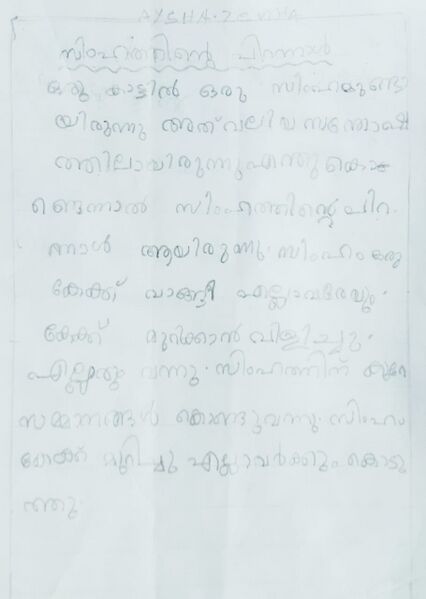 AYSHA.ZENHA
സിംഹത്തിന്റെ പിറന്നാൾ
ഒരു കാട്ടിൽ ഒരു സിംഹമുണ്ടാ
യിരുന്നു അത് വലിയ സന്തോഷ
ത്തിലായിരുന്നു എന്തുകൊ
ണ്ടെന്നാൽ സിംഹത്തിന്റെ പിറ
ന്നാൾ ആയിരുന്നു. സിംഹം ഒരു
കേക്ക് വാങ്ങി എല്ലാവരേയും
കേക്ക് മുറിക്കാൻ വിളിച്ചു.
എല്ലാരും വന്നു. സിംഹത്തിന് കുറേ
സമ്മാനങ്ങൾ കൊണ്ടുവന്നു. സിംഹം
കേക്ക് മുറിച്ചു എല്ലാവർക്കും കൊടു
ത്തു.